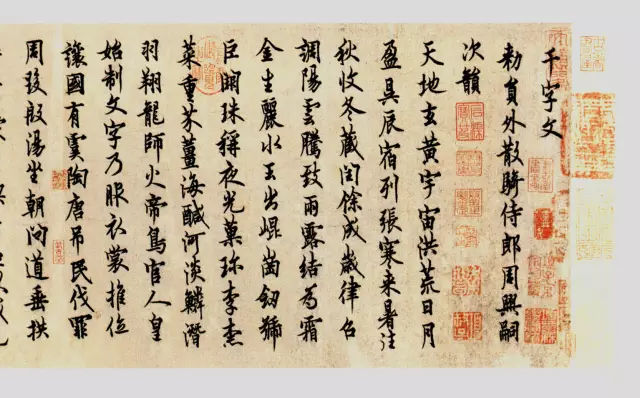 千字文
勅員外散騎侍郎周興嗣
次韻
天地玄黄宇宙洪荒日月
盈昃辰宿列張寒来暑往
秋收冬蔵閏餘成歲律召
調陽雲騰致雨露結為霜
金生麗水玉出崐崗劒號
巨闕珠稱夜光菓珍李柰
菜重芥薑海鹹河淡鱗潛
羽翔龍師火帝鳥官人皇
始制文字乃服衣裳推位
讓國有虞陶唐吊民伐罪
周發殷湯坐朝問道垂拱